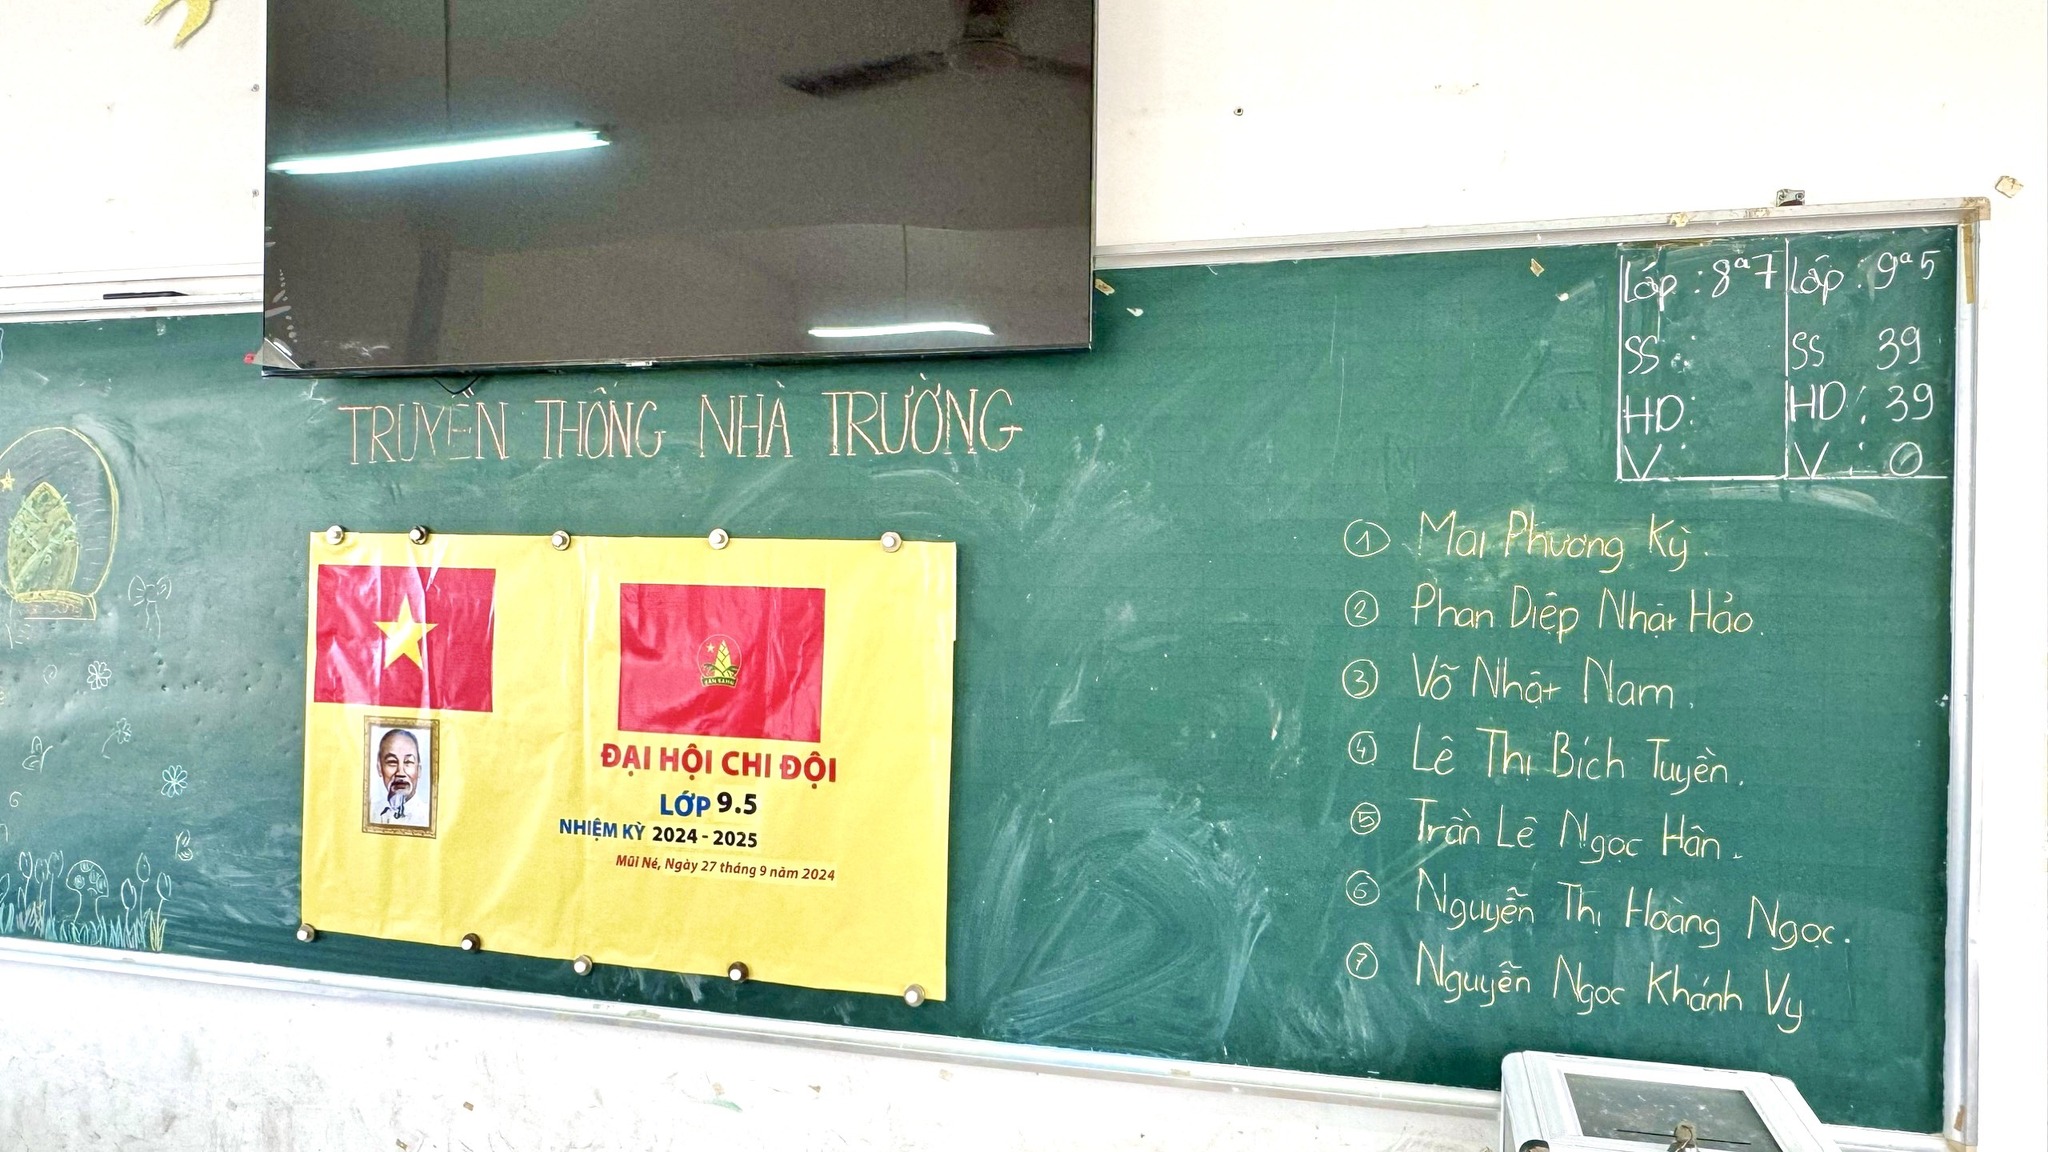 TRUYỀN THỐNG NHÀ TRƯỜNG
ĐẠI HỘI CHI ĐỘI
LỚP 9.5
NHIỆM KỲ 2024 - 2025
Mũi Né, Ngày 27 tháng 9 năm 2024
Lớp : 8a7
SS :
HD:
V :
Lớp : 9a5
SS 39
HD : 39
V : 0
1 Mai Phương Kỳ.
2 Phan Diệp Nhật Hảo.
3 Võ Nhật Nam.
4 Lê Thị Bích Tuyền.
5 Trần Lê Ngọc Hân.
6 Nguyễn Thị Hoàng Ngọc.
7 Nguyễn Ngọc Khánh Vy